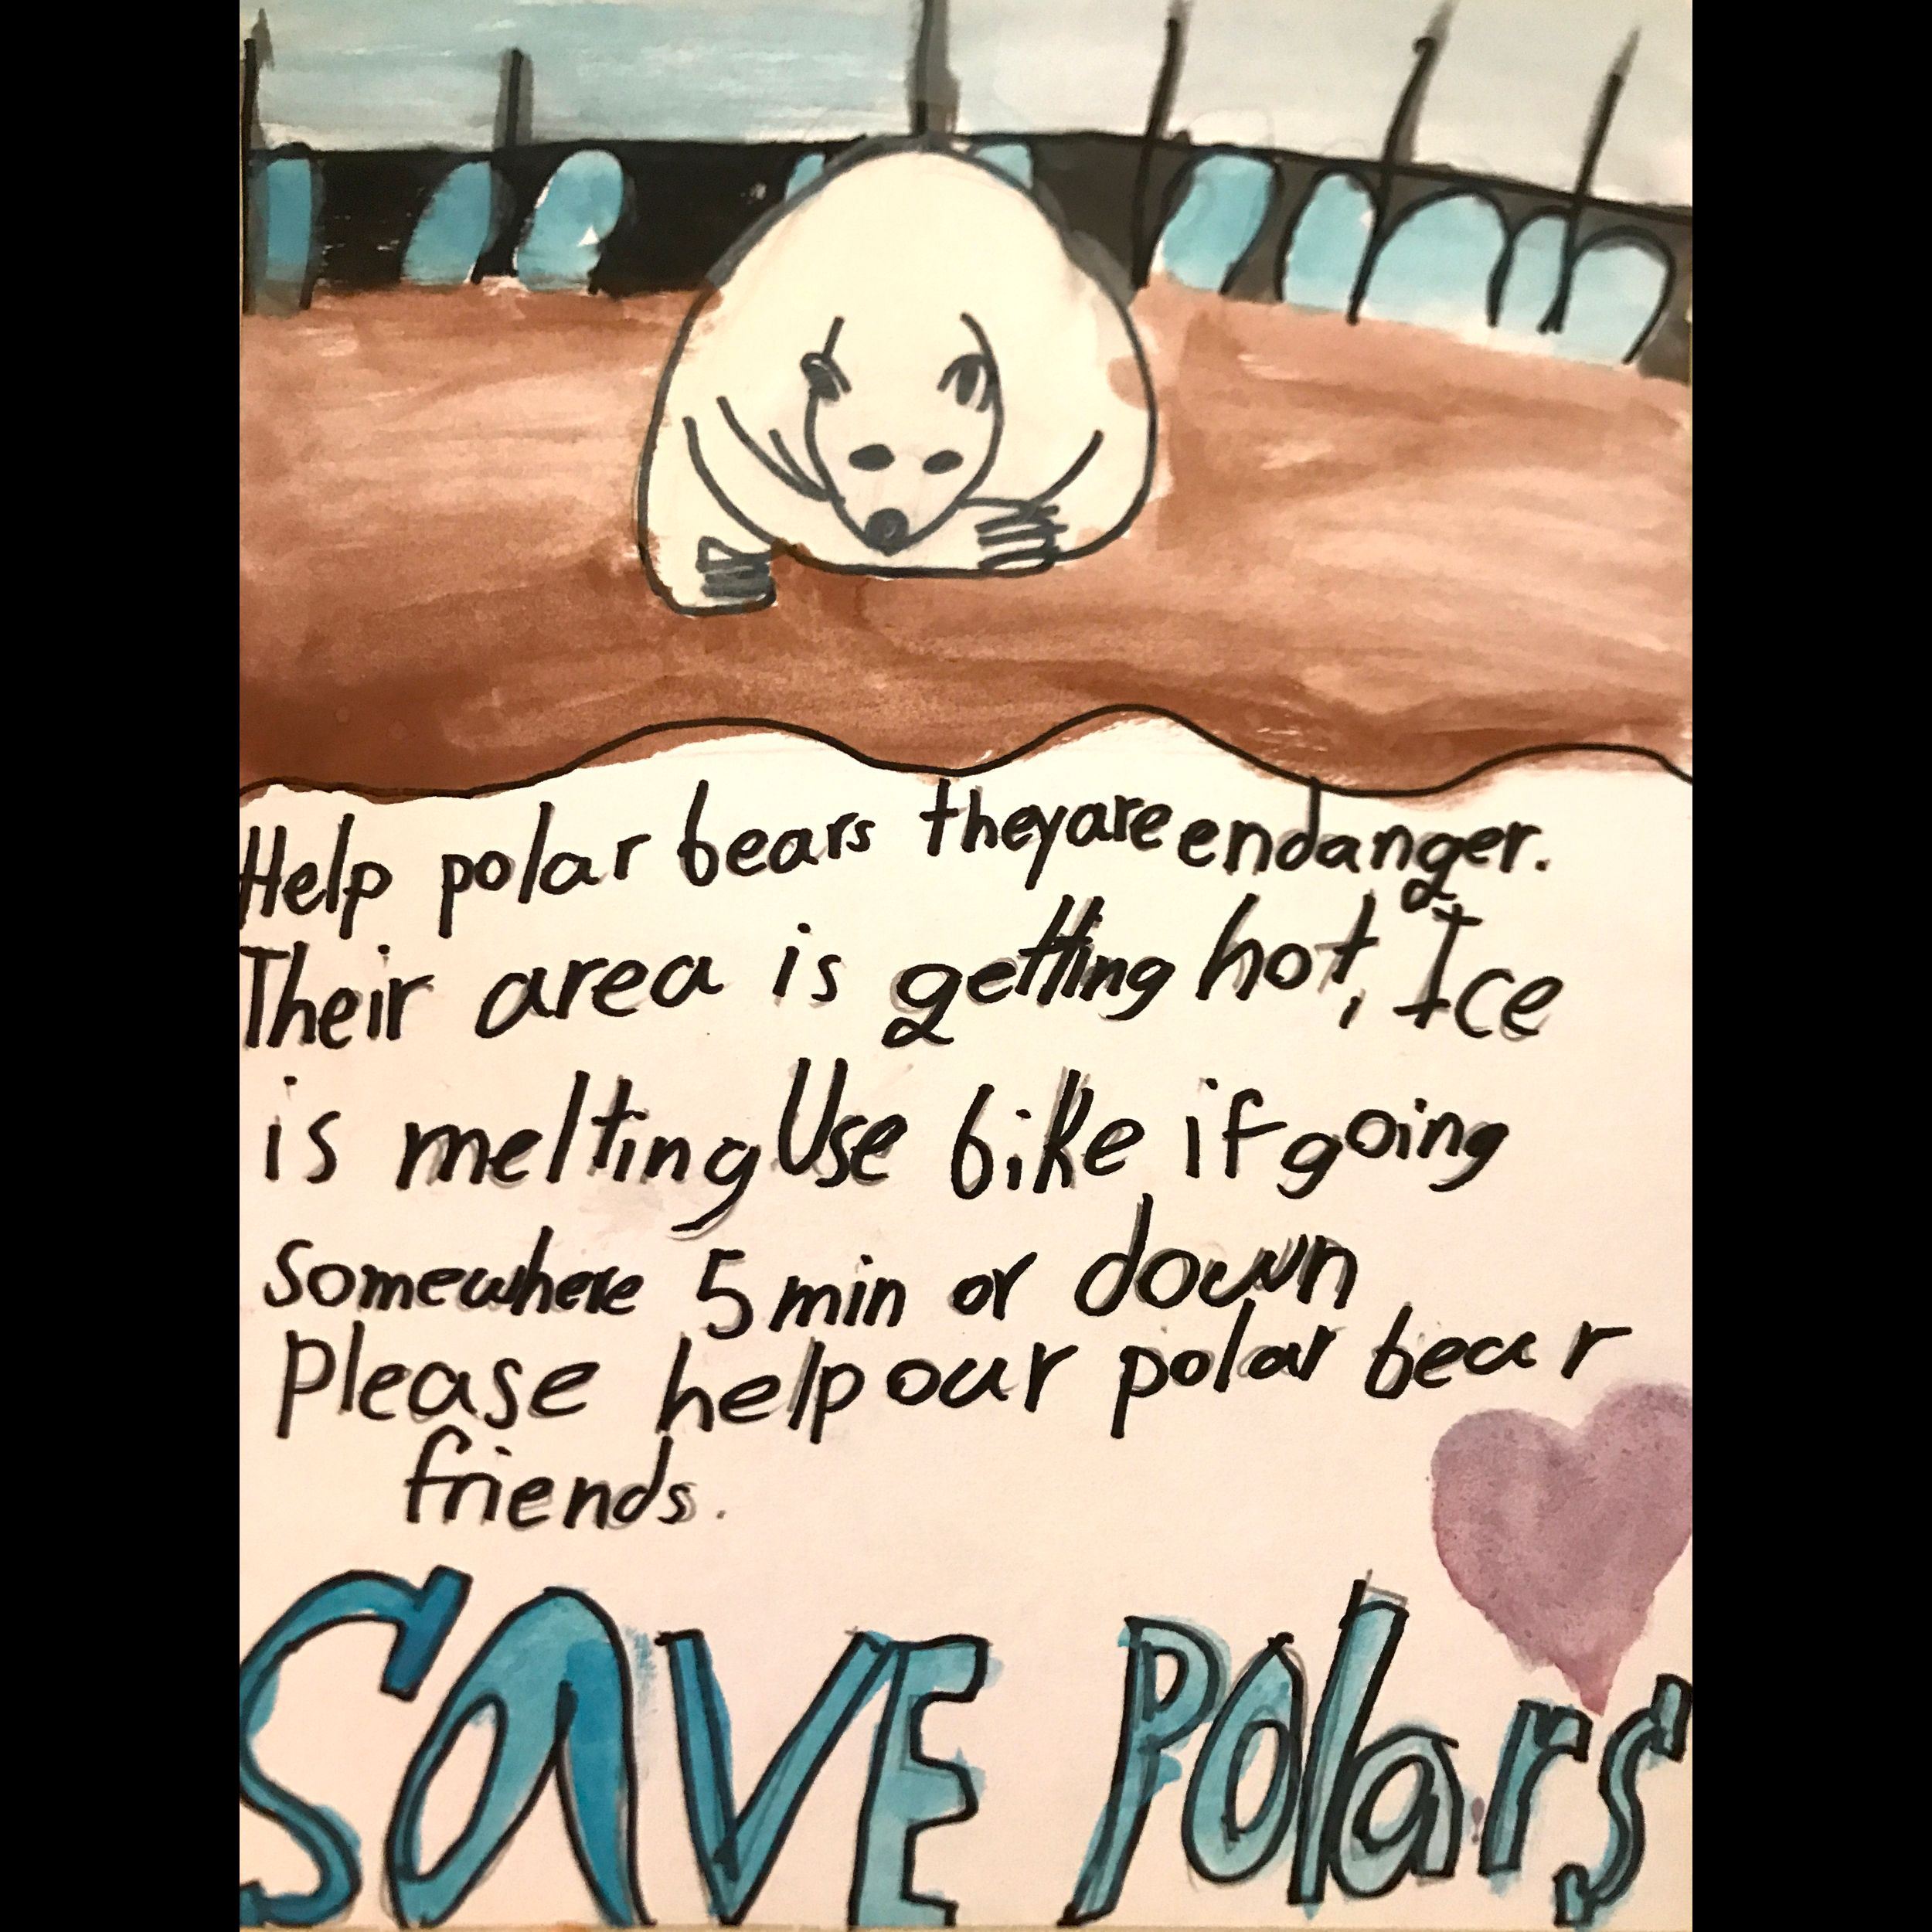 Help polar bears they are endanger.
Their area is getting hot, Ice
is melting Use bike if going
somewhere 5 min or down
please help our polar bear
friends.
SAVE Polars